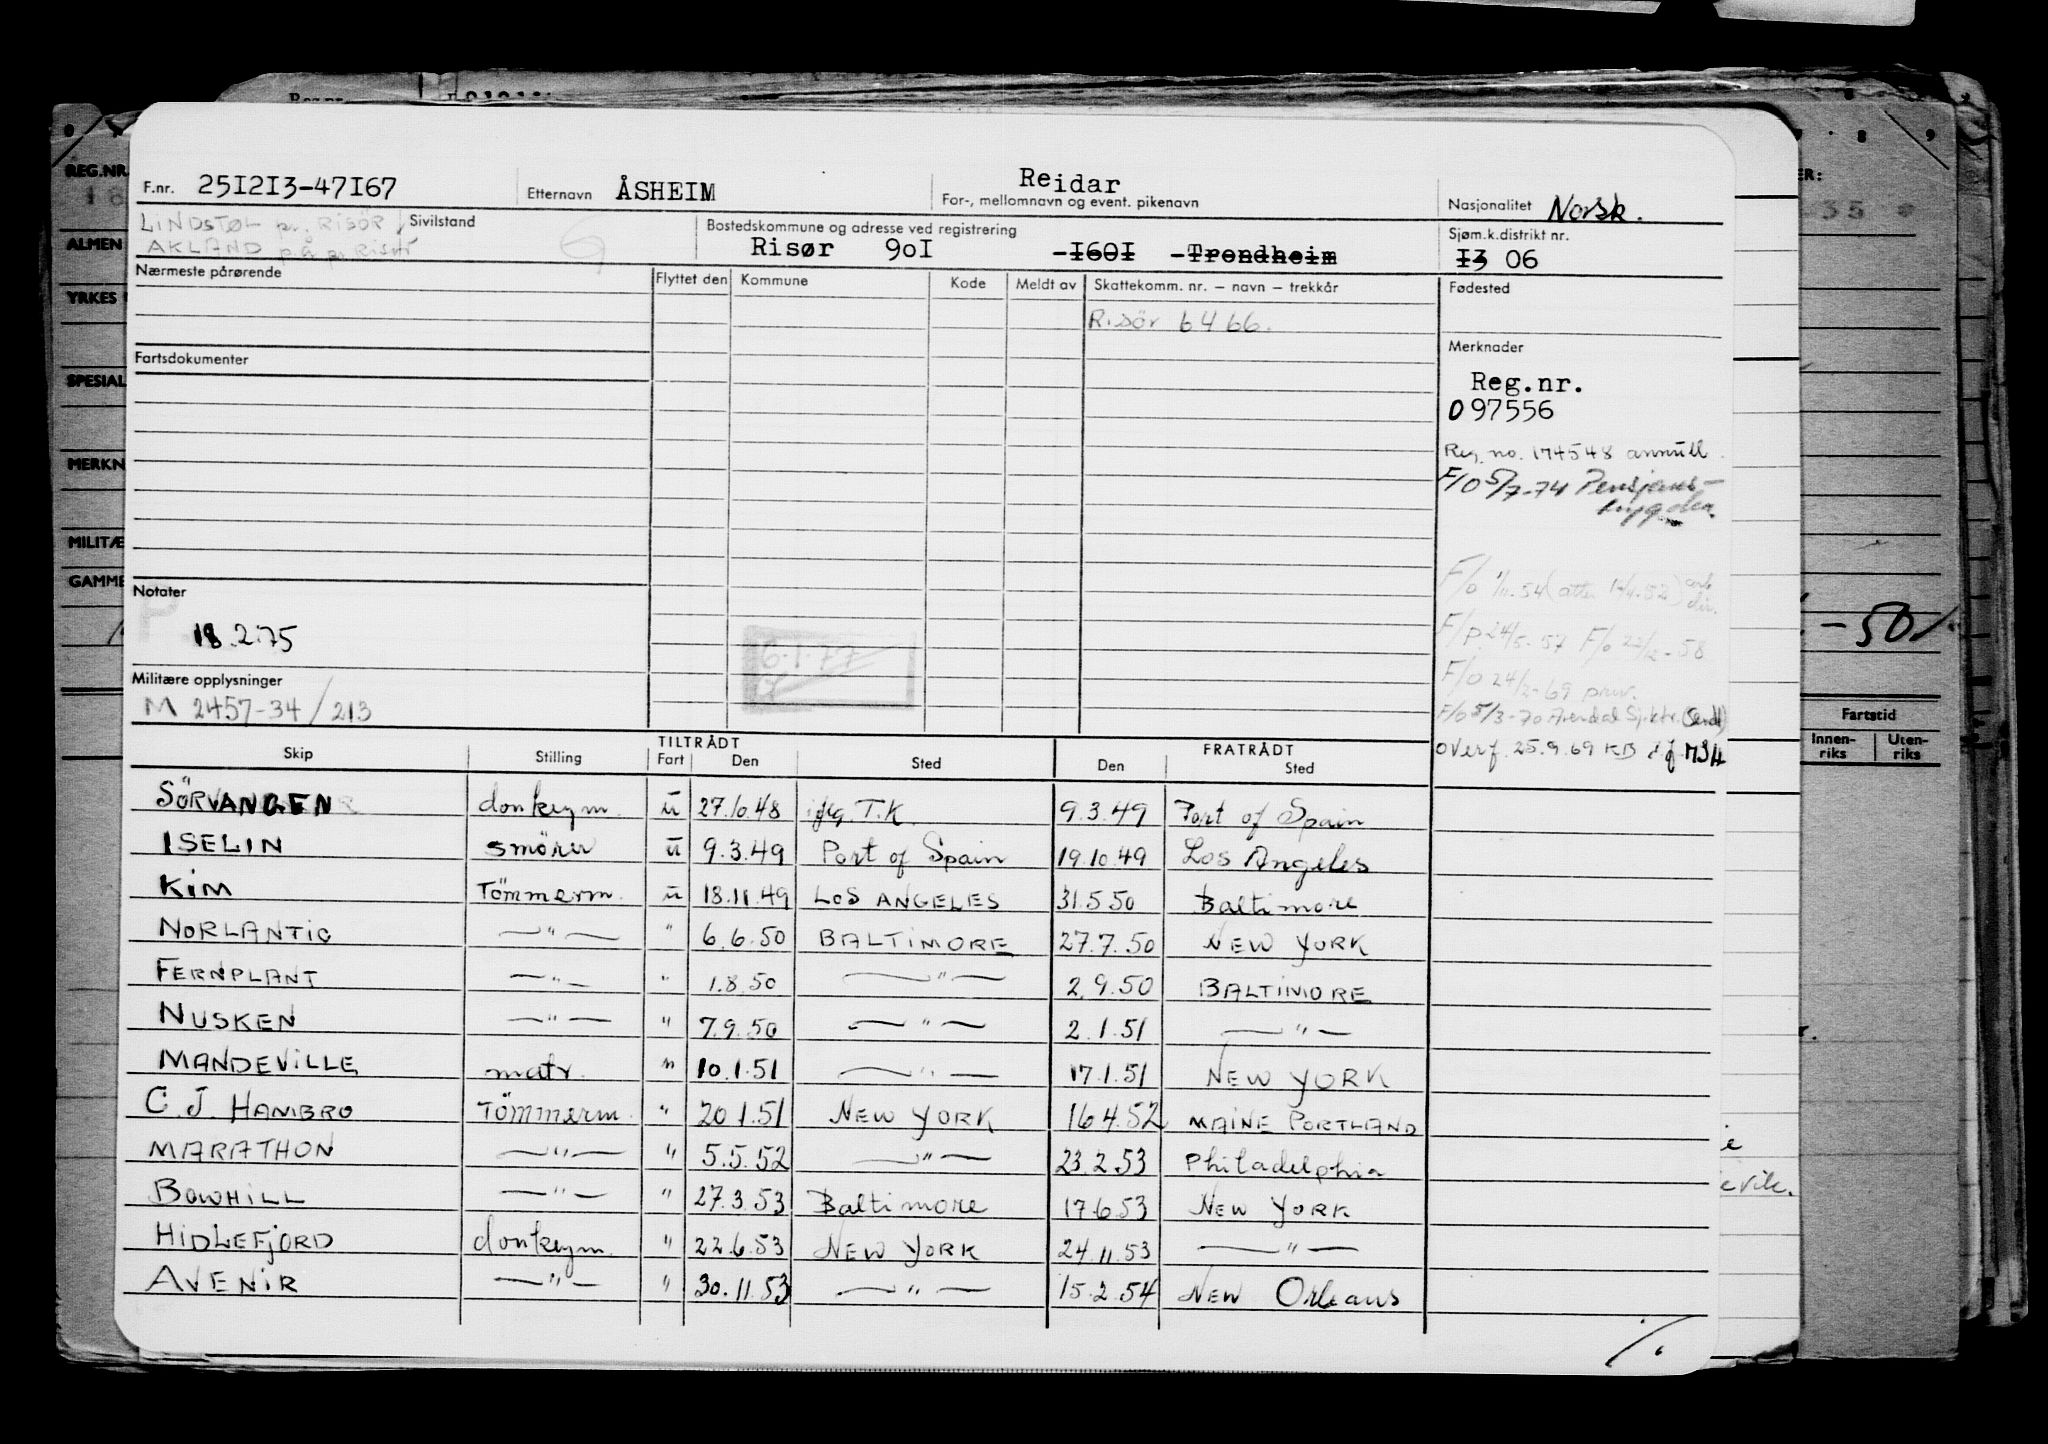 F.nr. 251213-47167 Etternavn ÅSHEIM Reidar
For-, mellomnavn og event. pikenavn
Nasjonalitet Norsk.
LINDSTØL pr. RISÖR Sivilstand
AKLAND p.å pr. Risör
Bostedskommune og adresse ved registrering
Risør 901 -1601 -Trondheim
Sjøm.k.distrikt nr.
13 06
Nærmeste pårørende Flyttet den Kommune Kode Meldt av Skattekomm. nr. – navn – trekkår Fødested
Risör 6466.
Fartsdokumenter
Merknader
Reg.nr.
097556
Reg. no. 174548 annull.
F/O 5/7-74 Pensjons-
trygden.
F/o 1/11.54 (atter
F/P. 24/5-57 F/o 22/2-58
F/O 24/2-69 prov.
F/O 5/3-70 Arendal Sj.ktr. (Sendt)
Overf. 25.9.69 KB
Notater
18.2.75
6.1.77
Militære opplysninger
M 2457-34/213
TILTRÅDT FRATRÅDT
Skip Stilling Fart Den Sted Den Sted
SÖRVANGEN donkeym. u 27.10.48 T.K. 9.3.49 Port of Spain
ISELIN smörer u 9.3.49 Port of Spain 19.10.49 Los Angeles
KIM Tömmerm. u 18.11.49 LOS ANGELES 31.5.50 Baltimore
NORLANTIC —"— " 6.6.50 BALTIMORE 27.7.50 NEW YORK
FERNPLANT —"— " 1.8.50 —"— 2.9.50 BALTIMORE
NUSKEN —"— " 7.9.50 —"— 2.1.51 —"—
MANDEVILLE matr. " 10.1.51 —"— 17.1.51 NEW YORK
C.J. HAMBRO TÖMMERM. " 20.1.51 NEW YORK 16.4.52 MAINE PORTLAND
MARATHON —"— " 5.5.52 —"— 23.2.53 Philadelphia
BOWHILL —"— " 27.3.53 Baltimore 17.6.53 NEW YORK
HIDLEFJORD donkeym. " 22.6.53 NEW YORK 24.11.53 —"—
AVENIR —"— " 30.11.53 —"— 15.2.54 NEW Orleans
REG.NR
ALMEN
YRKES
SPESIAL
MERKN
MILITÆ
GAMME
8 9
35
-50
Fartstid
Innen-
riks
Uten-
riks